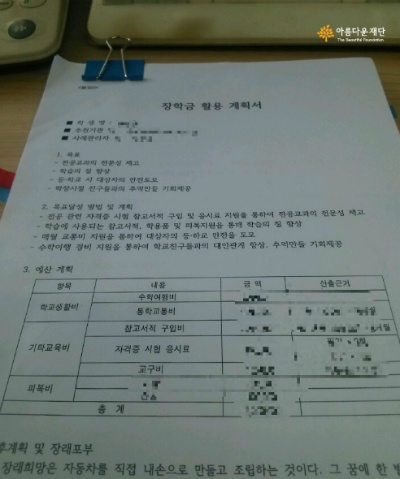 아름다운재단
The Beautiful Foundation
장학금 활용 계획서
■ 학 생 명 :
■ 추천기관
■ 사례관리자
1. 목표
- 전공교과의 전문성 제고
- 학습의 질 향상
- 등·하교 시 대상자의 안전도모
- 학창시절 친구들과의 추억만들 기회제공
2. 목표달성 방법 및 계획
- 전공 관련 자격증 시험 참고서적 구입 및 응시료 지원을 통하여 전공교과의 전문성 제고
- 학습에 사용되는 참고서적, 학용품 및 피복지원을 통해 학습의 질 향상
- 매월 교통비 지원을 통하여 대상자의 등·하교 안전을 도모
- 수학여행 경비 지원을 통하여 학교친구들과의 대인관계 향상, 추억만들 기회제공
3. 예산 계획
항목 내용 금 액 산출근거
학교생활비 수학여행비
통학교통비
기타교육비 참고서적 구입비
자격증 시험 응시료
교구비
피복비
총 계
후계획 및 장래포부
장래희망은 자동차를 직접 내손으로 만들고 조립하는 것이다. 그 꿈에 한